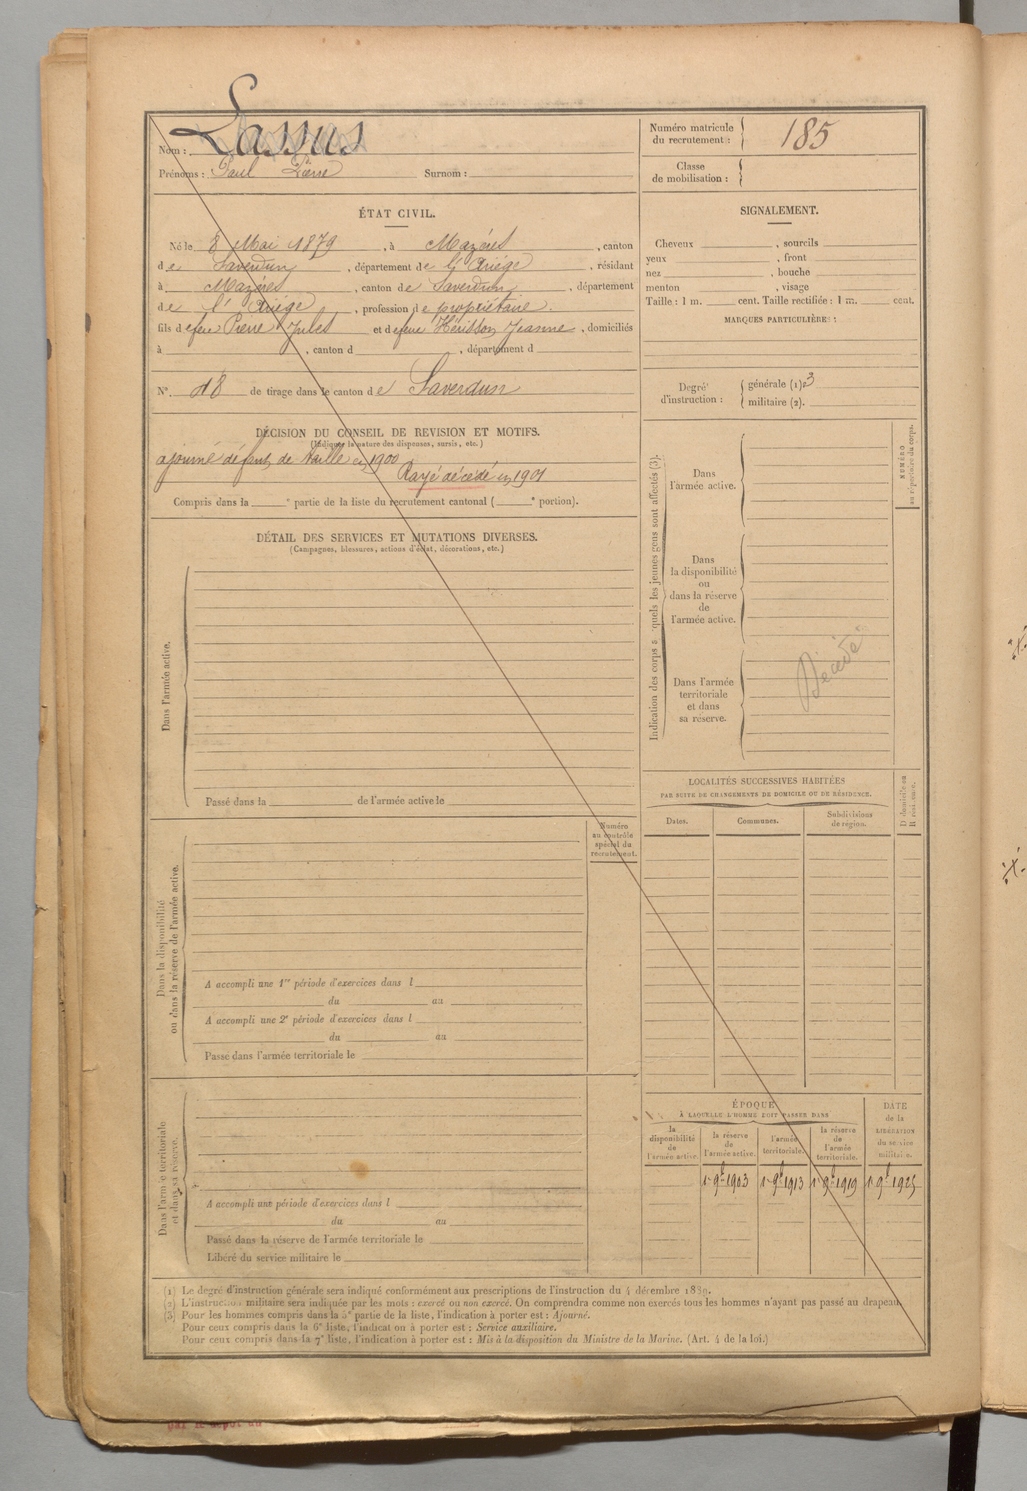 Nom : Lassus
Prénoms : Paul Pierre Surnom :
Numéro matricule
du recrutement : 185
Classe
de mobilisation :
ÉTAT CIVIL.
Né le 8 Mai 1879 , à Mazères , canton
de Saverdun , département de l'Ariége , résidant
à Mazères , canton de Saverdun , département
de l'Ariége , profession de propriétaire.
fils de feu Pierre Jules et de feue Hérisson Jeanne , domiciliés
à , canton d , département d
N° 18 de tirage dans le canton de Saverdun
DÉCISION DU CONSEIL DE REVISION ET MOTIFS.
(Indiquer la nature des dispenses, sursis, etc.)
ajourné défaut de taille en 1900
Rayé décédé en 1901
Compris dans la e partie de la liste du recrutement cantonal ( e portion).
DÉTAIL DES SERVICES ET MUTATIONS DIVERSES.
(Campagnes, blessures, actions d'éclat, décorations, etc.)
Dans l'armée active.
Passé dans la de l'armée active le
Numéro
au contrôle
spécial du
recrutement.
Dans la disponibilité
ou dans la réserve de l'armée active.
A accompli une 1re période d'exercices dans l
du au
A accompli une 2e période d'exercices dans l
du au
Passé dans l'armée territoriale le
Dans l'armée territoriale
et dans sa réserve.
A accompli une période d'exercices dans l
du au
Passé dans la réserve de l'armée territoriale le
Libéré du service militaire le
SIGNALEMENT.
Cheveux , sourcils
yeux , front
nez , bouche
menton , visage
Taille : 1 m. cent. Taille rectifiée : 1 m. cent.
MARQUES PARTICULIÈRES :
Degré
d'instruction :
générale (1). 3
militaire (2).
Indication des corps auxquels les jeunes gens sont affectés (3).
Dans
l'armée active.
NUMÉRO
au répertoire du corps.
Dans
la disponibilité
ou
dans la réserve
de
l'armée active.
Dans l'armée
territoriale
et dans
sa réserve.
Décédé
LOCALITÉS SUCCESSIVES HABITÉES
PAR SUITE DE CHANGEMENTS DE DOMICILE OU DE RÉSIDENCE.
Dates. Communes. Subdivisions
de région.
D domicile ou
R résidence.
ÉPOQUE
À LAQUELLE L'HOMME DOIT PASSER DANS
DATE
de la
LIBÉRATION
du service
militaire.
la
disponibilité
de
l'armée active.
la réserve
de
l'armée active.
l'armée
territoriale.
la réserve
de
l'armée
territoriale.
1er 9bre 1903 1er 9bre 1913 1er 9bre 1919 1er 9bre 1925
(1) Le degré d'instruction générale sera indiqué conformément aux proscriptions de l'instruction du 4 décembre 1889.
(2) L'instruction militaire sera indiquée par les mots : exercé ou non exercé. On comprendra comme non exercés tous les hommes n'ayant pas passé au drapeau.
(3) Pour les hommes compris dans la 5e partie de la liste, l'indication à porter est : Ajourné.
Pour ceux compris dans la 6e liste, l'indication à porter est : Service auxiliaire.
Pour ceux compris dans la 7e liste, l'indication à porter est : Mis à la disposition du Ministre de la Marine. (Art. 4 de la loi.)